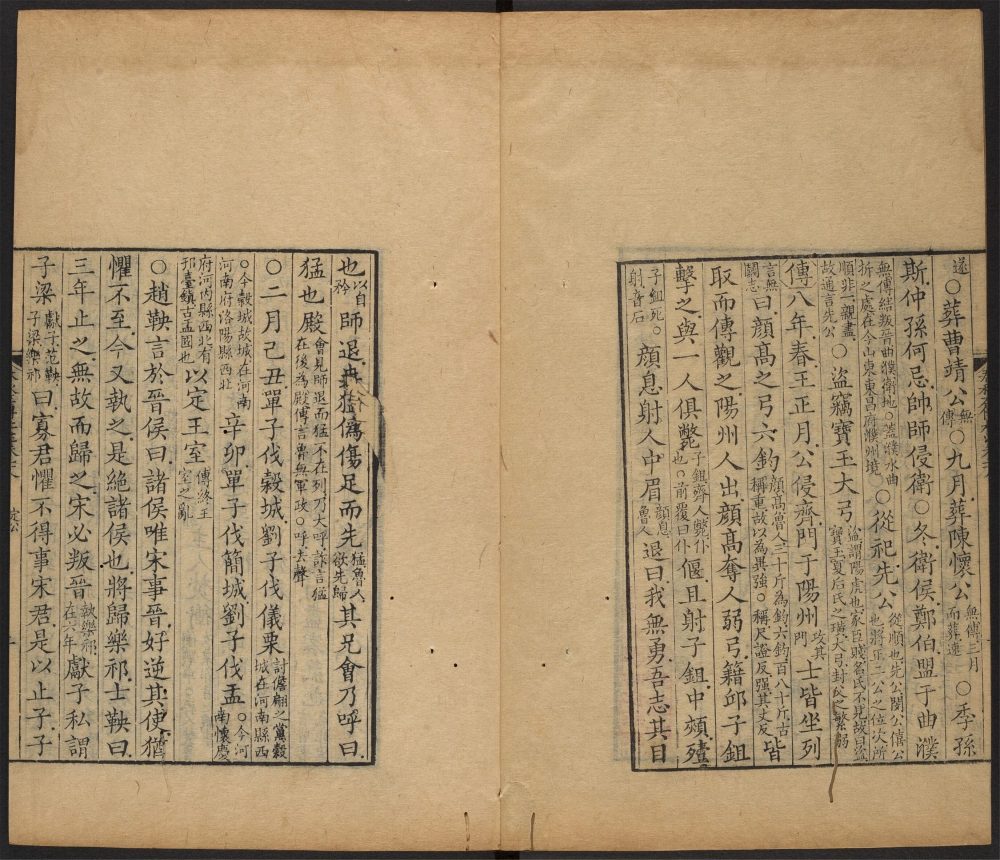 遂〇葬曹靖公無傳〇九月葬陳懷公無傳三月而葬速〇季孫
斯仲孫何忌帥師侵衛〇冬衛侯鄭伯盟于曲濮
無傳結叛晉曲濮衛地〇蓋濮水曲折之處在今山東東昌府濮州境〇從祀先公從順也先公閔公僖公也將正二公之位次所
順非一親盡故通言先公〇盜竊寶玉大弓盜謂陽虎也家臣賤名氏不見故曰盜寶玉夏后氏之璜大弓封父之繁弱
傳八年春王正月公侵齊門于陽州攻其門士皆坐列
言無鬭志曰顏高之弓六鈞顏高魯人三十斤為鈞六鈞百八十斤古稱重故以為異強〇稱尺證反强其丈反皆
取而傳觀之陽州人出顏高奪人弱弓籍邱子鉏
擊之與一人俱斃子鉏齊人斃仆也〇前覆曰仆偃且射子鉏中頰殪
子鉏死〇射音石顏息射人中眉顏息魯人退曰我無勇吾志其目
也以自矜師退冉猛偽傷足而先猛魯人欲先歸其兄會乃呼曰
猛也殿會見師退而猛不在列乃大呼詐言猛在後為殿傳言魯無軍政〇呼去聲
〇二月己丑單子伐穀城劉子伐儀栗討儋翩之黨穀城在河南縣西
〇今穀城故城在河南河南府洛陽縣西北辛卯單子伐簡城劉子伐盂〇今河南懷慶
府河內縣西北有邘臺鎮古盂國也以定王室傳終王室之亂
〇趙鞅言於晉侯曰諸侯唯宋事晉好逆其使猶
懼不至今又執之是絕諸侯也將歸樂祁士鞅曰
三年止之無故而歸之宋必叛晉執樂祁在六年獻子私謂
子梁獻子范鞅子梁樂祁曰寡君懼不得事宋君是以止子子